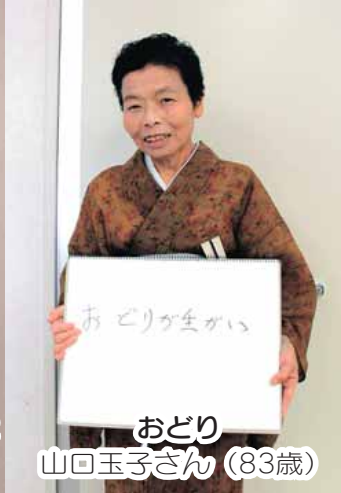 おどりが生がい
おどり
山口玉子さん（83歳）